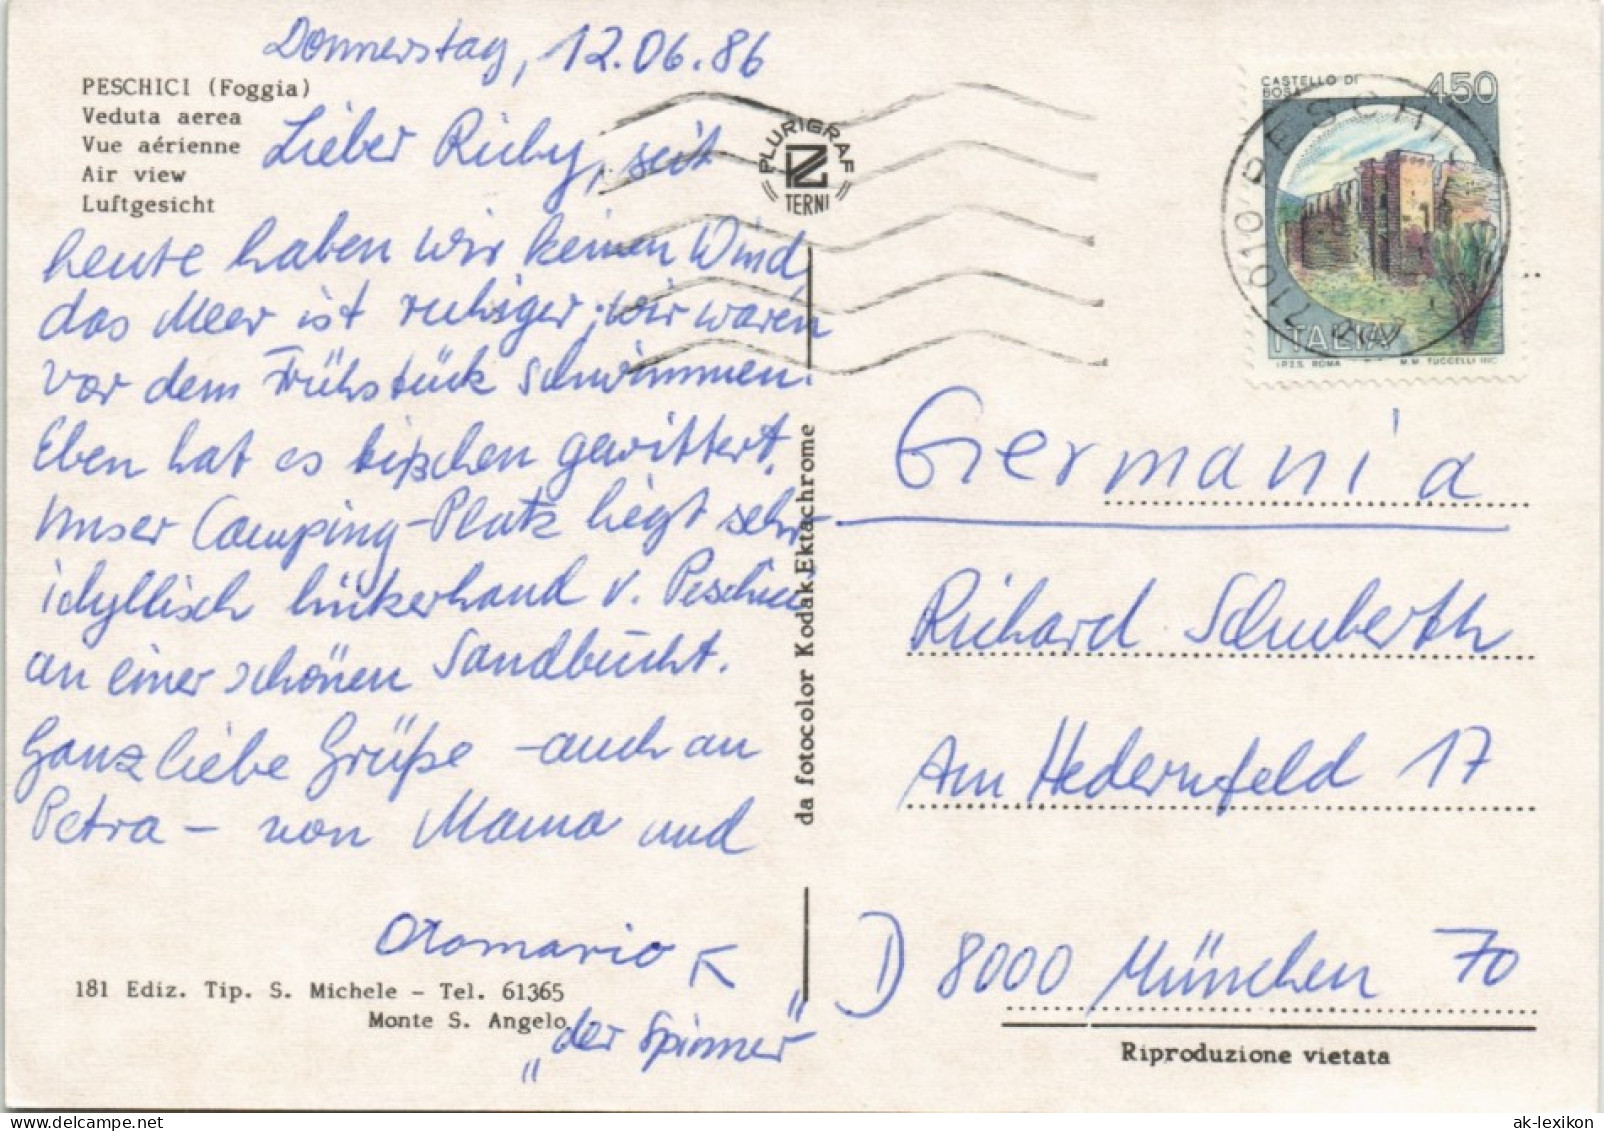 Donnerstag, 12.06.86
PESCHICI (Foggia)
Veduta aerea
Vue aérienne
Air view
Luftgesicht
Lieber Richy, seit
heute haben wir keinen Wind,
das Meer ist ruhiger; wir waren
vor dem Frühstück schwimmen.
Eben hat es bißchen gewittert.
Unser Camping-Platz liegt sehr
idyllisch linkerhand v. Peschici
an einer schönen Sandbucht.
Ganz liebe Grüße - auch an
Petra - von Mama und
Otomario
"der Spinner"
181 Ediz. Tip. S. Michele - Tel. 61365
Monte S. Angelo
da fotocolor Kodak Ektachrome
PLURIGRAF
TERNI
CASTELLO DI
BOSA
450
ITALIA
I.P.Z.S. ROMA
M.M. TUCCELLI INC.
PESCHICI
71010
Germania
Richard Schuberth
Am Hedernfeld 17
D 8000 München 70
Riproduzione vietata
© ak-lexikon.de
ak-lexikon